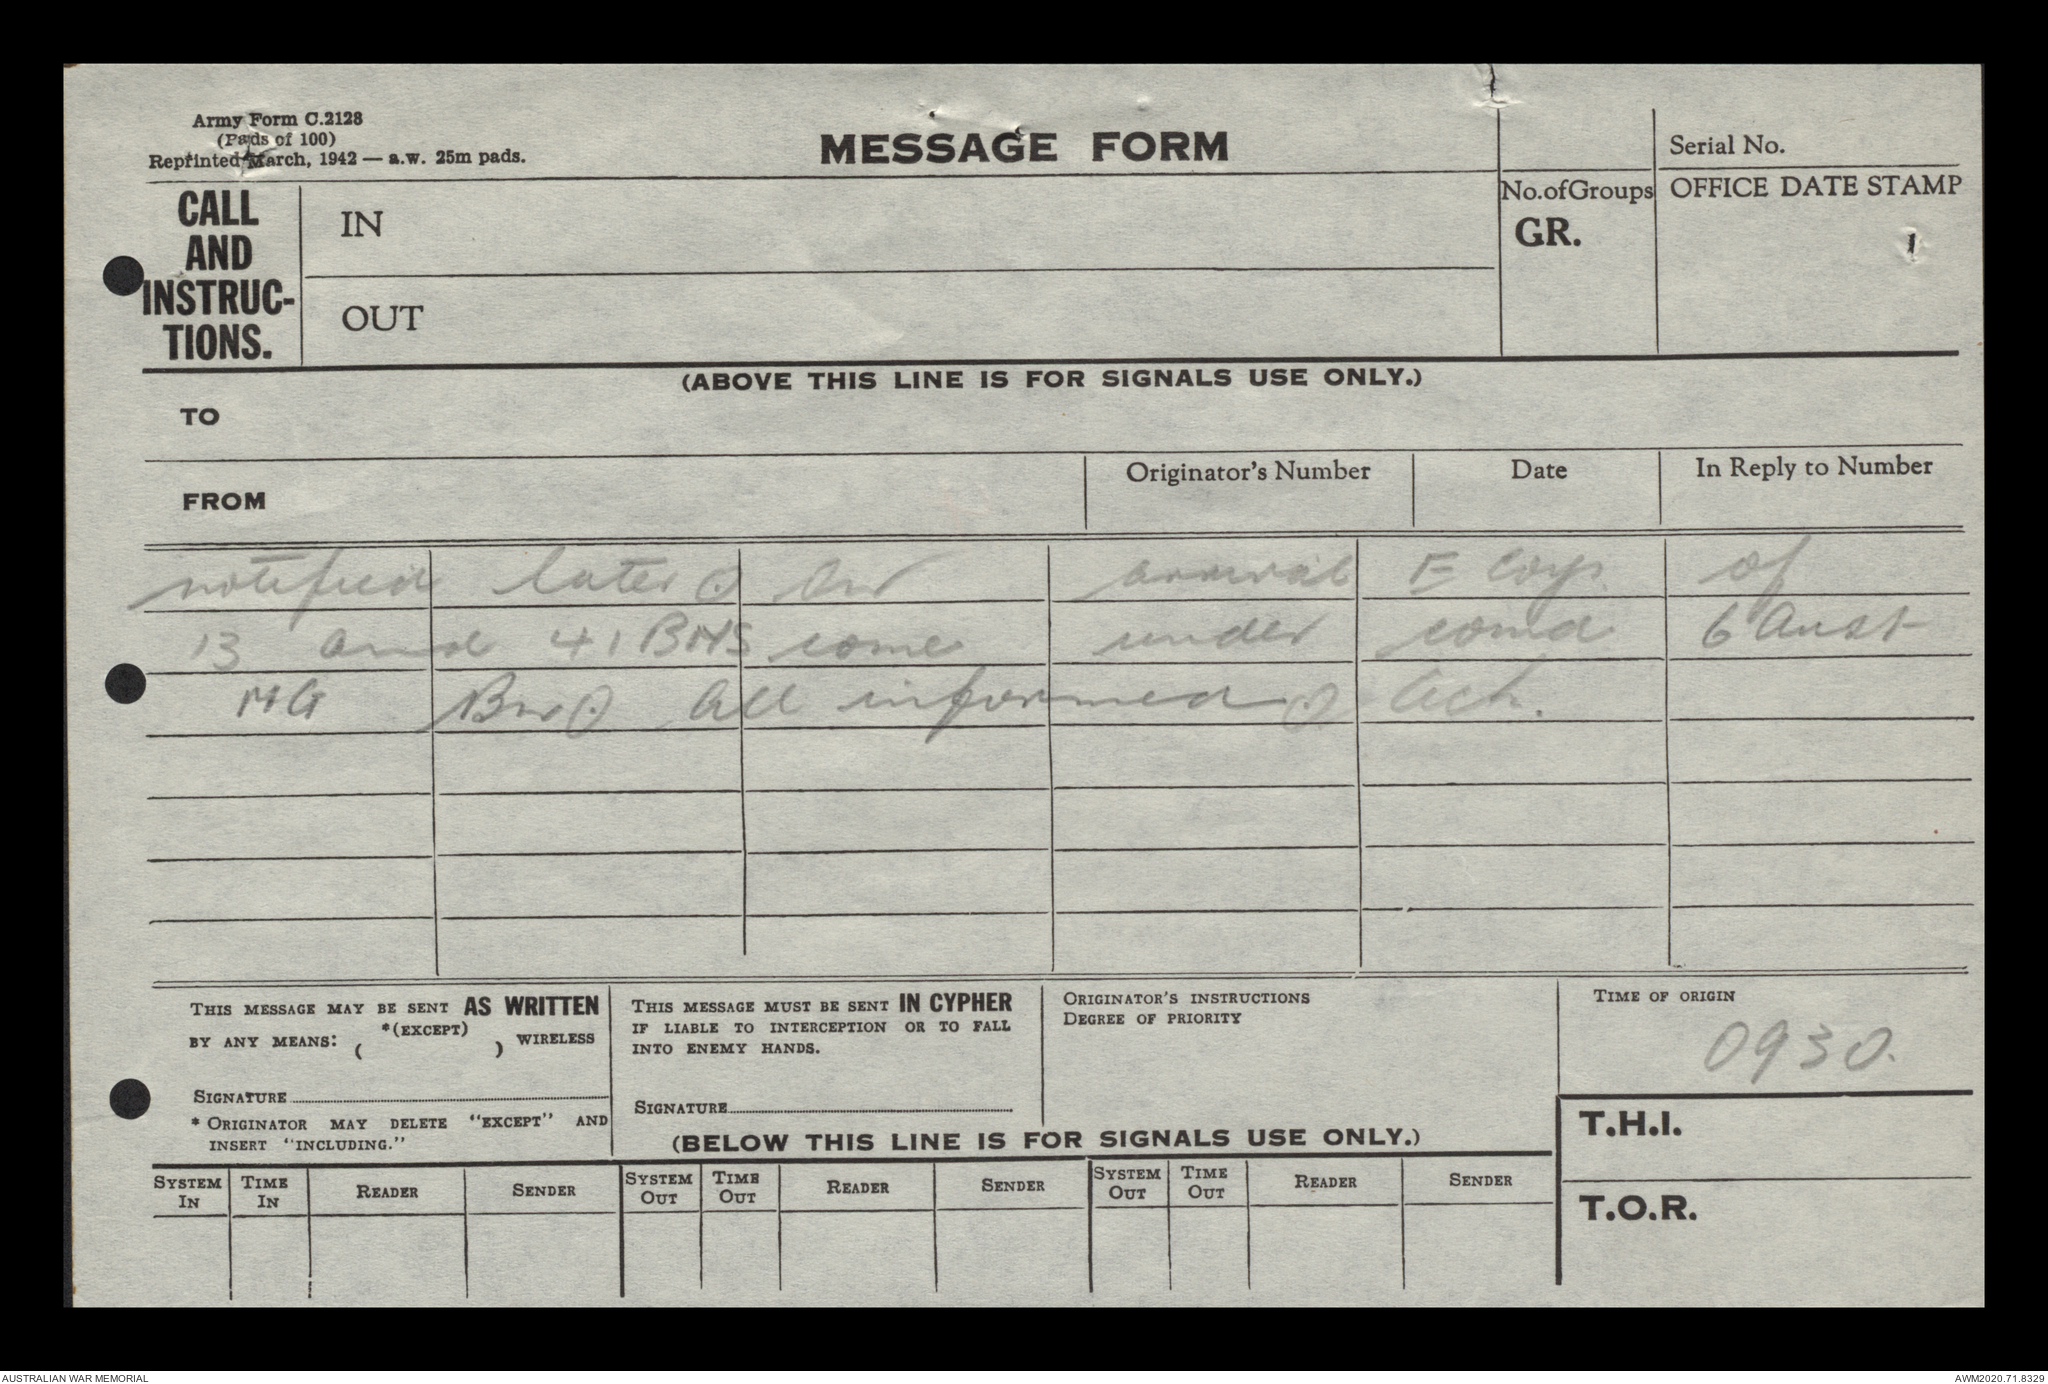 Army Form C.2128
(Pads of 100)
Reprinted March, 1942 — a.w. 25m pads.
MESSAGE FORM
Serial No.
CALL
AND
INSTRUC-
TIONS.
IN
OUT
No.ofGroups
GR.
OFFICE DATE STAMP
(ABOVE THIS LINE IS FOR SIGNALS USE ONLY.)
TO
FROM
Originator's Number
Date
In Reply to Number
notified later ⊙ On arrival E Coys of
13 and 41 BNS come under comd 6 Aust
MG Bn ⊙ All informed ⊙ Ack.
THIS MESSAGE MAY BE SENT AS WRITTEN
BY ANY MEANS: *(EXCEPT) ( ) WIRELESS
SIGNATURE
* ORIGINATOR MAY DELETE "EXCEPT" AND
INSERT "INCLUDING."
THIS MESSAGE MUST BE SENT IN CYPHER
IF LIABLE TO INTERCEPTION OR TO FALL
INTO ENEMY HANDS.
SIGNATURE
ORIGINATOR'S INSTRUCTIONS
DEGREE OF PRIORITY
TIME OF ORIGIN
0930.
(BELOW THIS LINE IS FOR SIGNALS USE ONLY.)
T.H.I.
T.O.R.
SYSTEM IN
TIME IN
READER
SENDER
SYSTEM OUT
TIME OUT
READER
SENDER
SYSTEM OUT
TIME OUT
READER
SENDER
AUSTRALIAN WAR MEMORIAL
AWM2020.71.8329